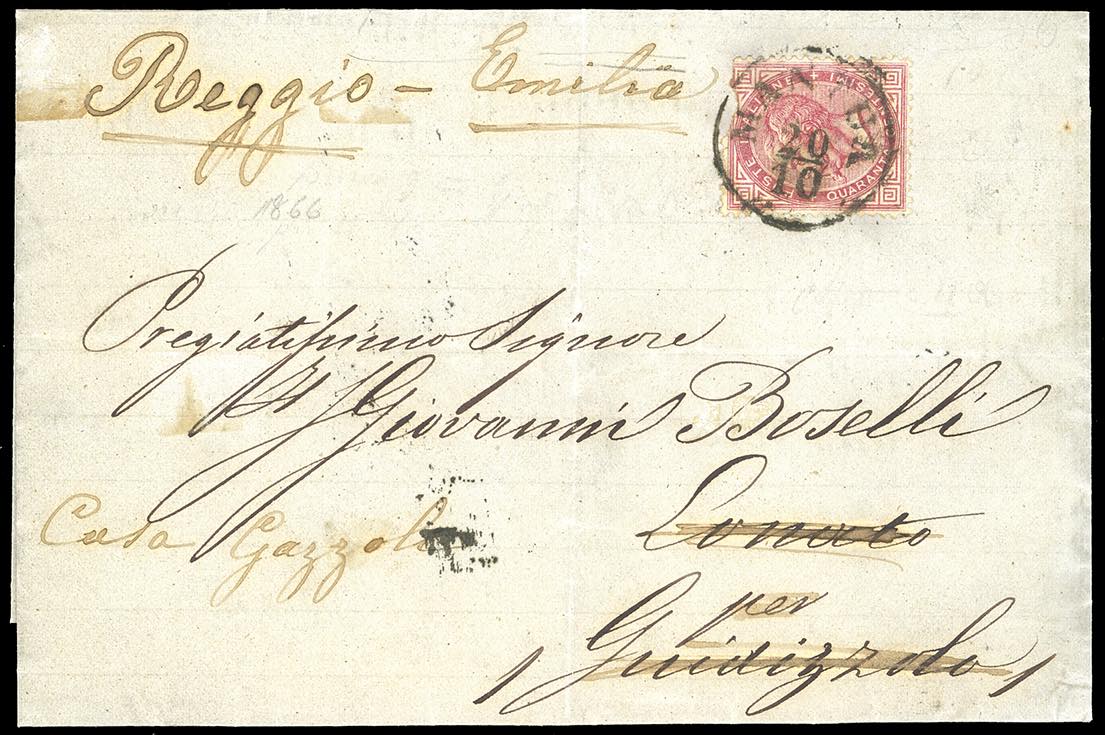 Reggio - Emilia
MANTOVA
20
10
POSTE ITALIANE CENTESIMI QUARANTA
1866
Pregiatissimo Signore
Il S Giovanni Boselli
Casa Gazzoli
Lonato
per
Guidizzolo